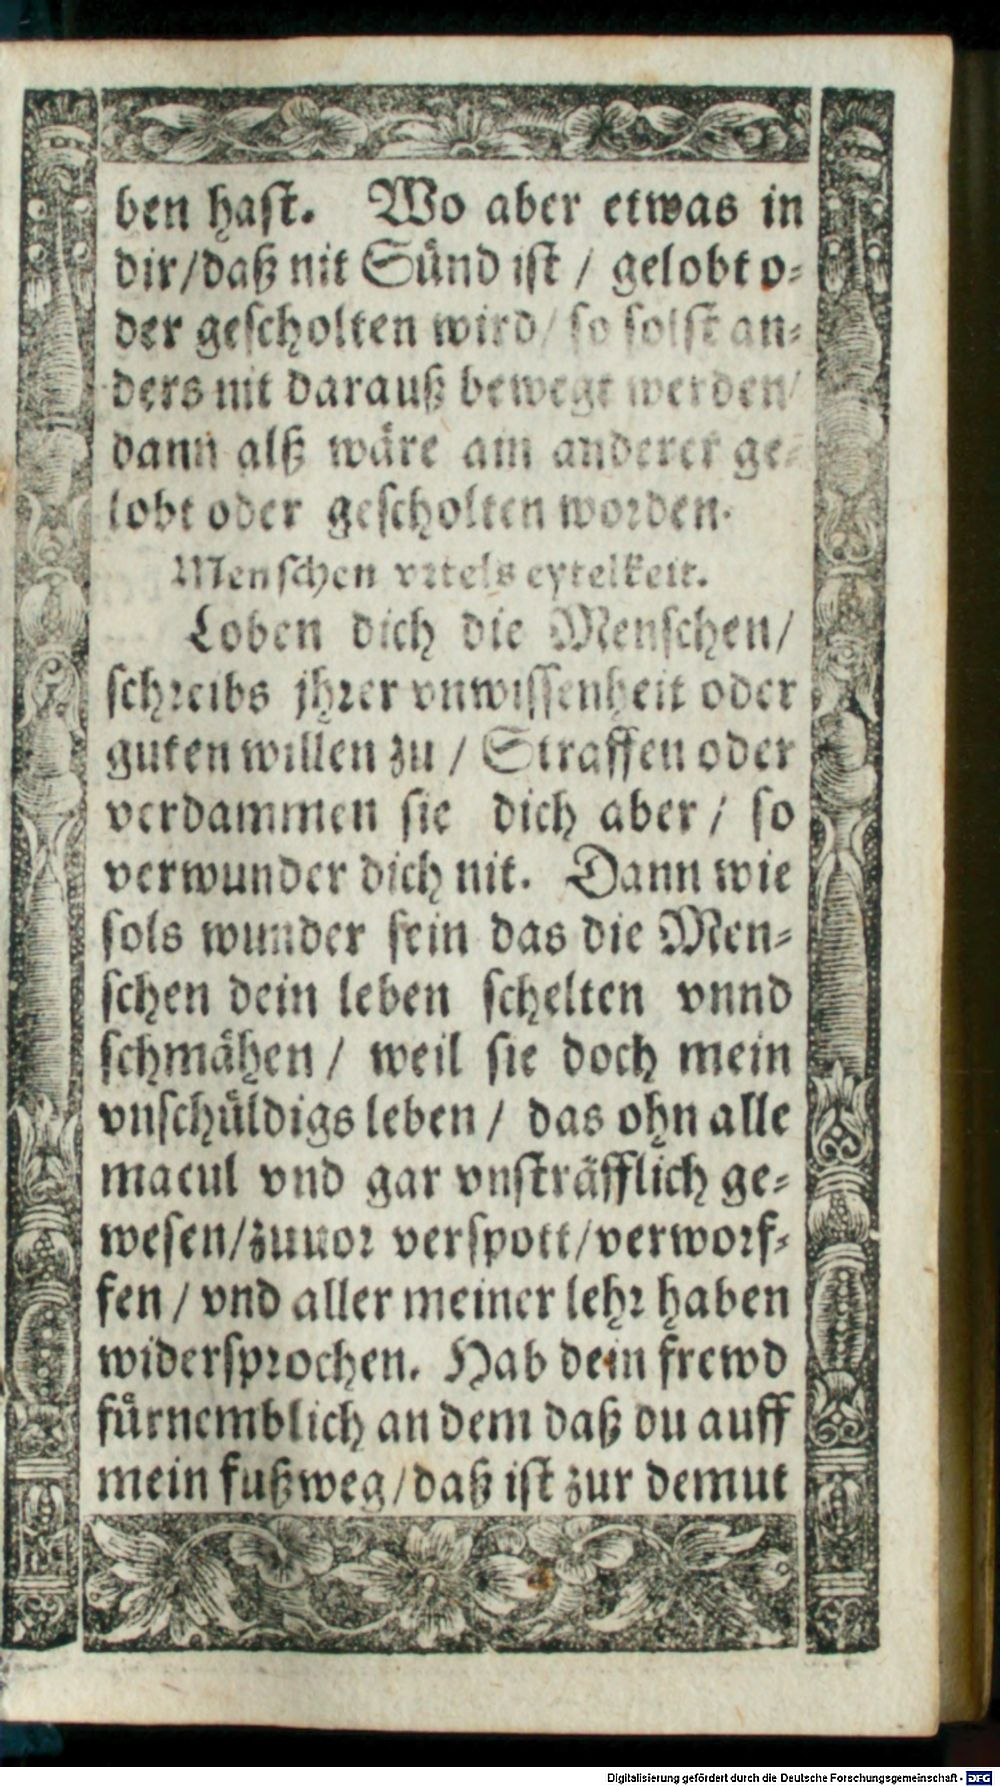 ben haſt. Wo aber etwas in
dir/daß nit Sünd iſt / gelobt o⸗
der geſcholten wird/ ſo ſolſt an⸗
ders nit darauß bewegt werden/
dann alß wäre ein anderer ge⸗
lobt oder geſcholten worden.
Menſchen vrtels eytelkeit.
Loben dich die Menſchen/
ſchreibs jhrer vnwiſſenheit oder
guten willen zu / Straffen oder
verdammen ſie dich aber / ſo
verwunder dich nit. Dann wie
ſols wunder ſein das die Men⸗
ſchen dein leben ſchelten vnnd
ſchmähen / weil ſie doch mein
vnſchüldigs leben / das ohn alle
macul vnd gar vnſträfflich ge⸗
weſen/zuuor verſpott/verworf⸗
fen / vnd aller meiner lehr haben
widerſprochen. Hab dein frewd
fürnemblich an dem daß du auff
mein fußweg/daß iſt zur demut
Digitalisierung gefördert durch die Deutsche Forschungsgemeinschaft - DFG